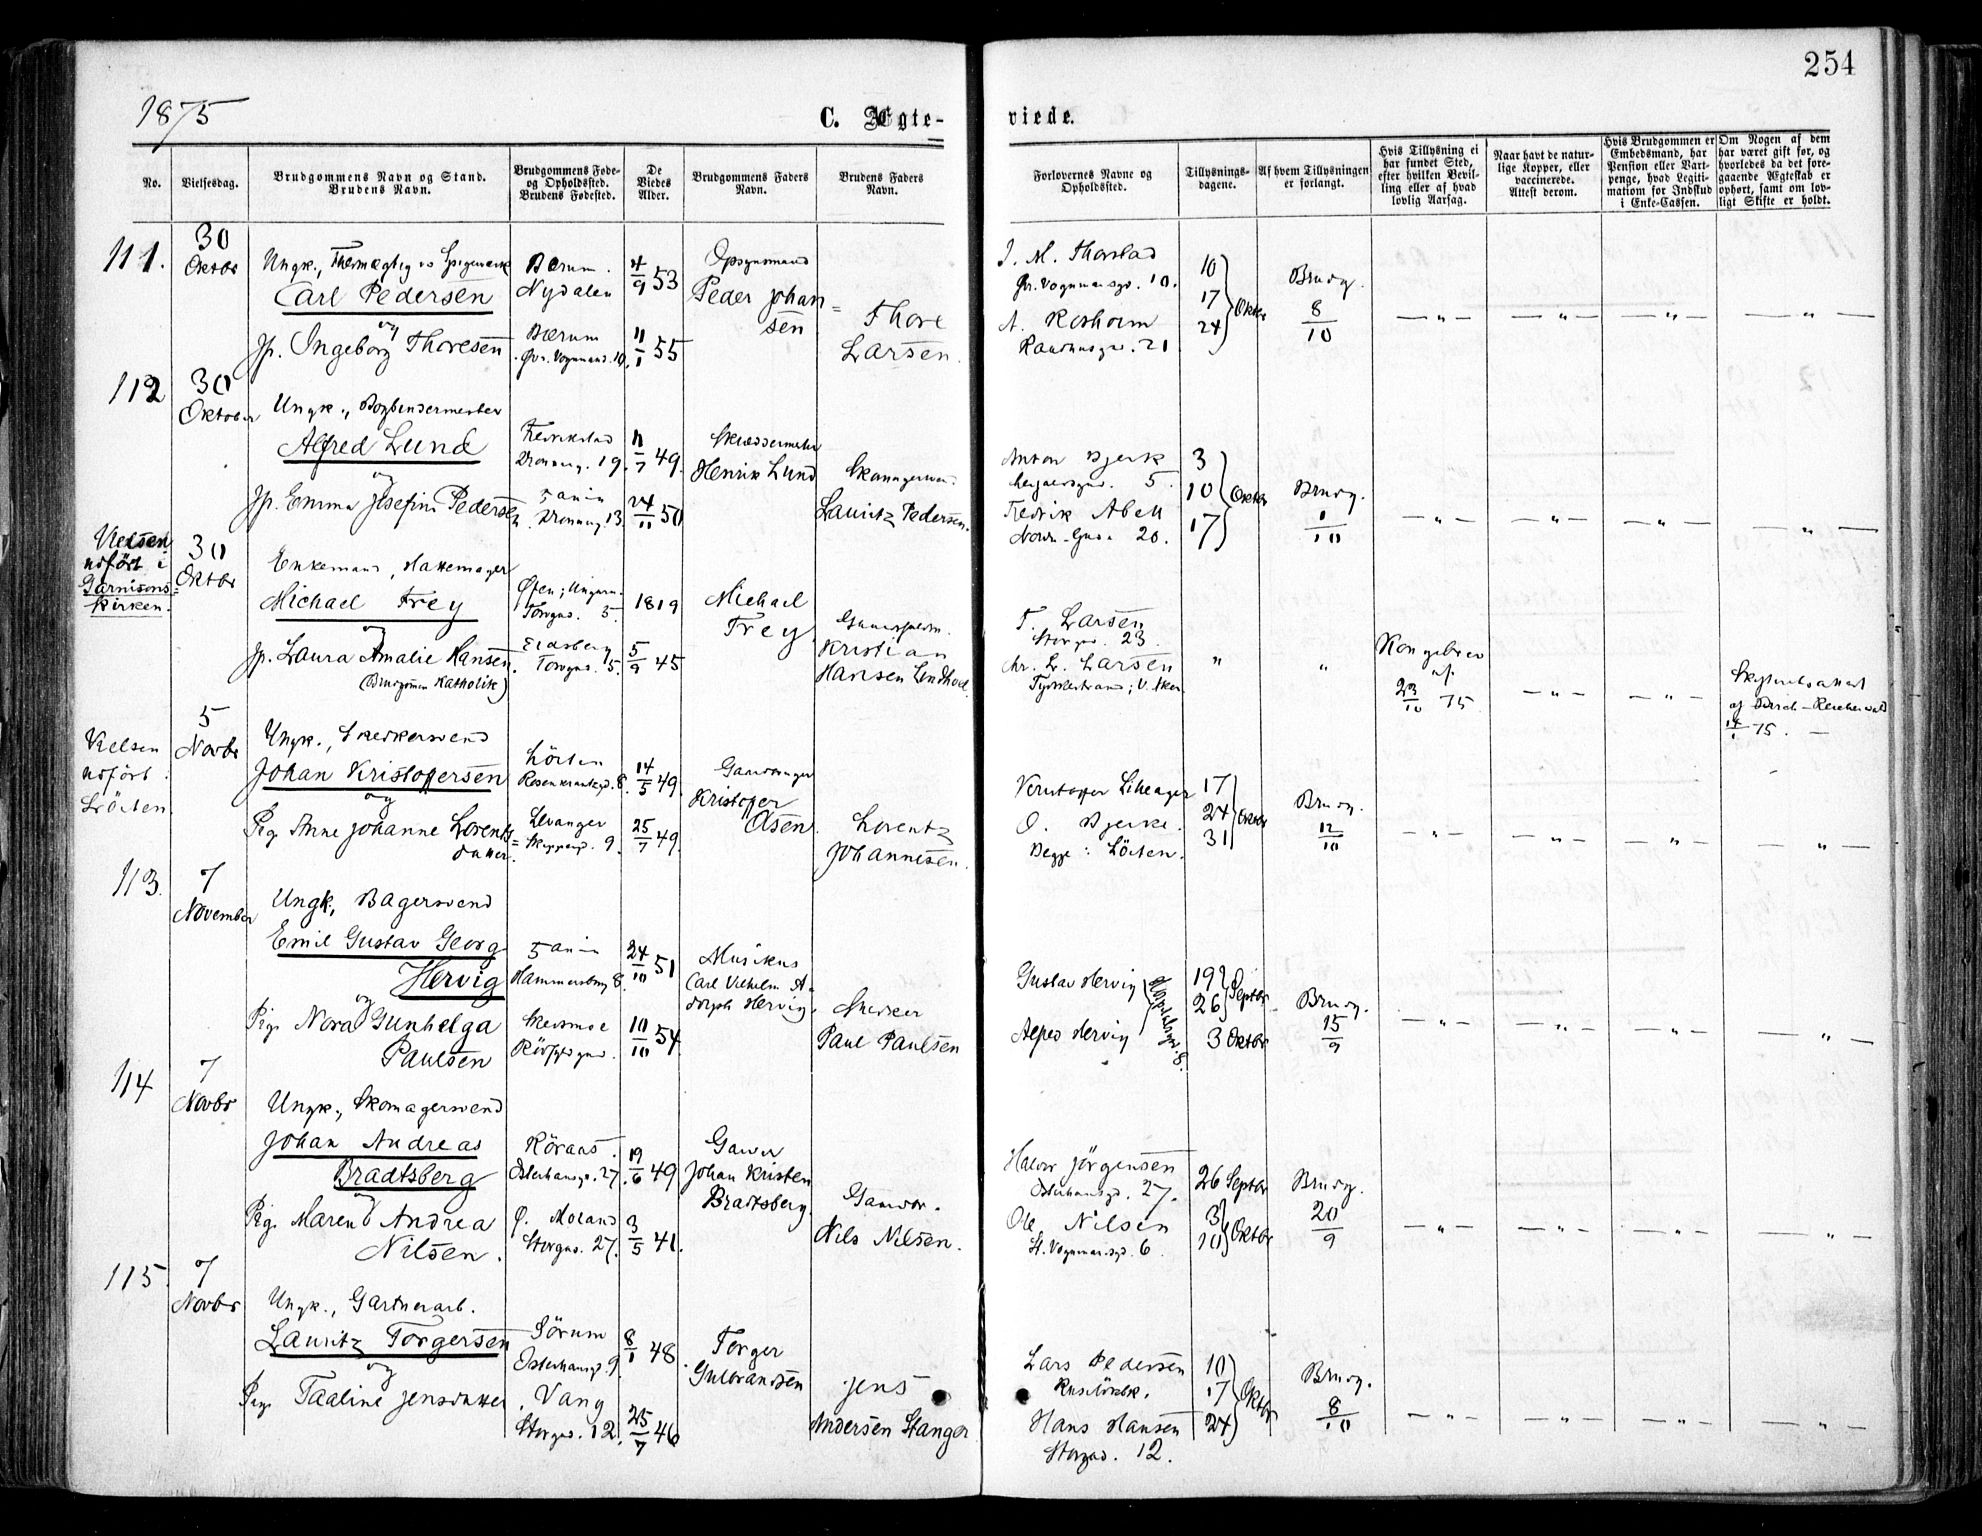 254
1875
C. Ægte-
viede.
No.
Vielsesdag.
Brudgommens Navn og Stand.
Brudens Navn.
Brudgommens Føde-
og Opholdssted.
Brudens Fødested.
De
Viedes
Alder.
Brudgommens Faders
Navn.
Brudens Faders
Navn.
Forlovernes Navne og
Opholdssted.
Tillysnings-
dagene.
Af hvem Tillysningen
er forlangt.
Hvis Tillysning ei
har fundet Sted,
efter hvilken Bevil-
ling eller af hvad
lovlig Aarsag.
Naar havt de natur-
lige Kopper, eller
vaccinerede.
Attest derom.
Hvis Brudgommen er
Embedsmand, har
Pension eller Vart-
penge, hvad Legiti-
mation for Indskud
i Enke-Cassen.
Om Nogen af dem
har været gift før, og
hvorledes da det fore-
gaaende Ægteskab er
ophørt, samt om lov-
ligt Skifte er holdt.
111.
30
Oktbr
Ungk.,
Carl Pedersen
og
Jp. Ingeborg Thoresen
Bærum.
Nydalen
Bærum
4/9 53
11/1 55
Opsynsmand
Peder Johan=
sen
Thore
Larsen.
J. M. Thorstad
10.
A. Kosholm
21
10
17
24
Oktbr
Brudg.
8/10
112
30
Oktober
Ungk., Bogbindermester
Alfred Lund
og
Jp. Emma Josefine Pedersen
Fredrikstad
19.
13.
11/7 49.
24/11 50
Skræddermester
Henrik Lund
Lauritz Pedersen.
Anton Bjerk
5.
Fredrik Abell
20.
3
10
17
Oktbr
Brudg.
1/10
Vielsen
udført i
Garnisons=
kirken.
30
Oktbr
Enkemand, Hattemager
Michael Frey
og
Jp. Laura Amalie Hansen.
(Brudgommen Katholik)
Ofen; Ungarn.
Torvgad. 5.
Eidsberg
Torvgad. 5.
1819
5/9 45
Michael
Frey
Kristian
Hansen
T. Larsen
Storgad. 23.
Chr. L. Larsen
Tyskestrand; V. Aker
Kongebrev
af
23/10 75
Skifteretsattest
75.
Vielsen
udført.
Löiten
5
Novbr
Ungk., Snedkersvend
Johan Kristoffersen
og
Pig. Anne Johanne Lorents=
datter.
Löiten
Rosenkrantzgd. 8.
Levanger
Skippergd. 9.
14/5 49.
25/7 49.
Gaardbruger
Kristoffer
Olsen.
Lorentz
Johannesen.
O. Bjerke.
Begge: Löiten.
17
24
31
Oktbr
Brudg.
12/10
113.
7
November
Ungk., Bagersvend
Emil Gustav Georg
Hervig
og
Pig. Nora Gunhelga
Paulsen
Hammersborg 8.
Skedsmoe
24/10 51
10/10 54
Musikus
Carl Vilhelm A=
dolph Hervig.
Snedker
Paul Paulsen
Gustav Hervig
Alfred Hervig
Hospitalsgd. 8.
19
26
Septbr
3 Oktbr
Brudg.
15/9
114
7
Novbr
Ungk., Skomagersvend
Johan Andreas
Bradtsberg
og
Pig. Maren Andrea
Nilsen.
Röraas.
Osterhausgd. 27.
Ø. Moland
Storgad. 27.
19/6 49
3/5 41.
Johan Kristen
Bradtsberg.
Nils Nilsen.
Halvor Jörgensen
Osterhausgd. 27.
Ole Nilsen
St. Vognmandsgd. 6.
26 Septbr
3
10
Oktbr
Brudg.
20/9
115
7
Novbr
Ungk., Gartnerarb.
Lauritz Torgersen
og
Pig. Taaline Jensdatter
Sörum
Osterhausgd. 9.
Vang
Storgad. 12.
8/1 48
25/7 46
Torger
Gulbrandsen
Jens
Andersen Stanger
Lars Pedersen
Hans Hansen
Storgad. 12.
10
17
24
Oktbr
Brudg.
8/10